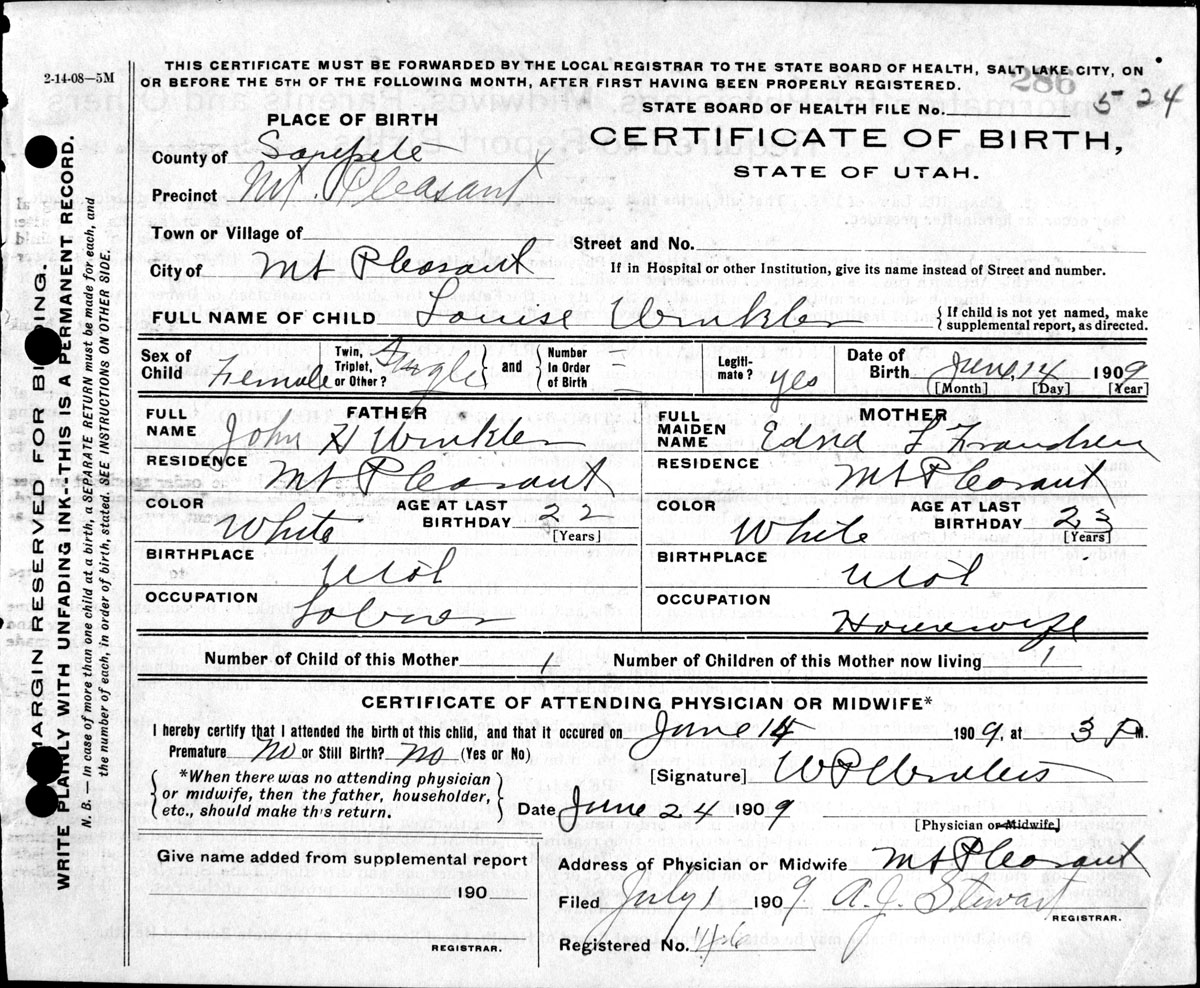 2-14-08—5M
THIS CERTIFICATE MUST BE FORWARDED BY THE LOCAL REGISTRAR TO THE STATE BOARD OF HEALTH, SALT LAKE CITY, ON
OR BEFORE THE 5TH OF THE FOLLOWING MONTH, AFTER FIRST HAVING BEEN PROPERLY REGISTERED.
286
STATE BOARD OF HEALTH FILE No. 5-24
PLACE OF BIRTH
CERTIFICATE OF BIRTH,
STATE OF UTAH.
County of Sanpete
Precinct Mt. Pleasant
Town or Village of
Street and No.
City of Mt Pleasant
If in Hospital or other Institution, give its name instead of Street and number.
FULL NAME OF CHILD Louise Winkler
{ If child is not yet named, make supplemental report, as directed.
Sex of Child Female
Twin, Triplet, or Other? Single } and { Number In Order of Birth
Legiti-mate? yes
Date of Birth June, 14 1909
[Month] [Day] [Year]
FATHER
FULL NAME John H Winkler
RESIDENCE Mt Pleasant
COLOR White
AGE AT LAST BIRTHDAY 22
[Years]
BIRTHPLACE Utah
OCCUPATION Laborer
MOTHER
FULL MAIDEN NAME Edna F Frandsen
RESIDENCE Mt Pleasant
COLOR White
AGE AT LAST BIRTHDAY 23
[Years]
BIRTHPLACE Utah
OCCUPATION Housewife
Number of Child of this Mother 1 Number of Children of this Mother now living 1
CERTIFICATE OF ATTENDING PHYSICIAN OR MIDWIFE*
I hereby certify that I attended the birth of this child, and that it occured on June 14 1909, at 3 P M.
Premature No or Still Birth? No (Yes or No)
{ *When there was no attending physician
or midwife, then the father, householder,
etc., should make this return. }
[Signature] W P Winters
Date June 24 1909
[Physician or Midwife]
Give name added from supplemental report
190
REGISTRAR.
Address of Physician or Midwife Mt Pleasant
Filed July 1 1909 A. J. Stewart
REGISTRAR.
Registered No. 46
MARGIN RESERVED FOR BINDING.
WRITE PLAINLY WITH UNFADING INK--THIS IS A PERMANENT RECORD.
N. B. — In case of more than one child at a birth, a SEPARATE RETURN must be made for each, and
the number of each, in order of birth, stated. SEE INSTRUCTIONS ON OTHER SIDE.